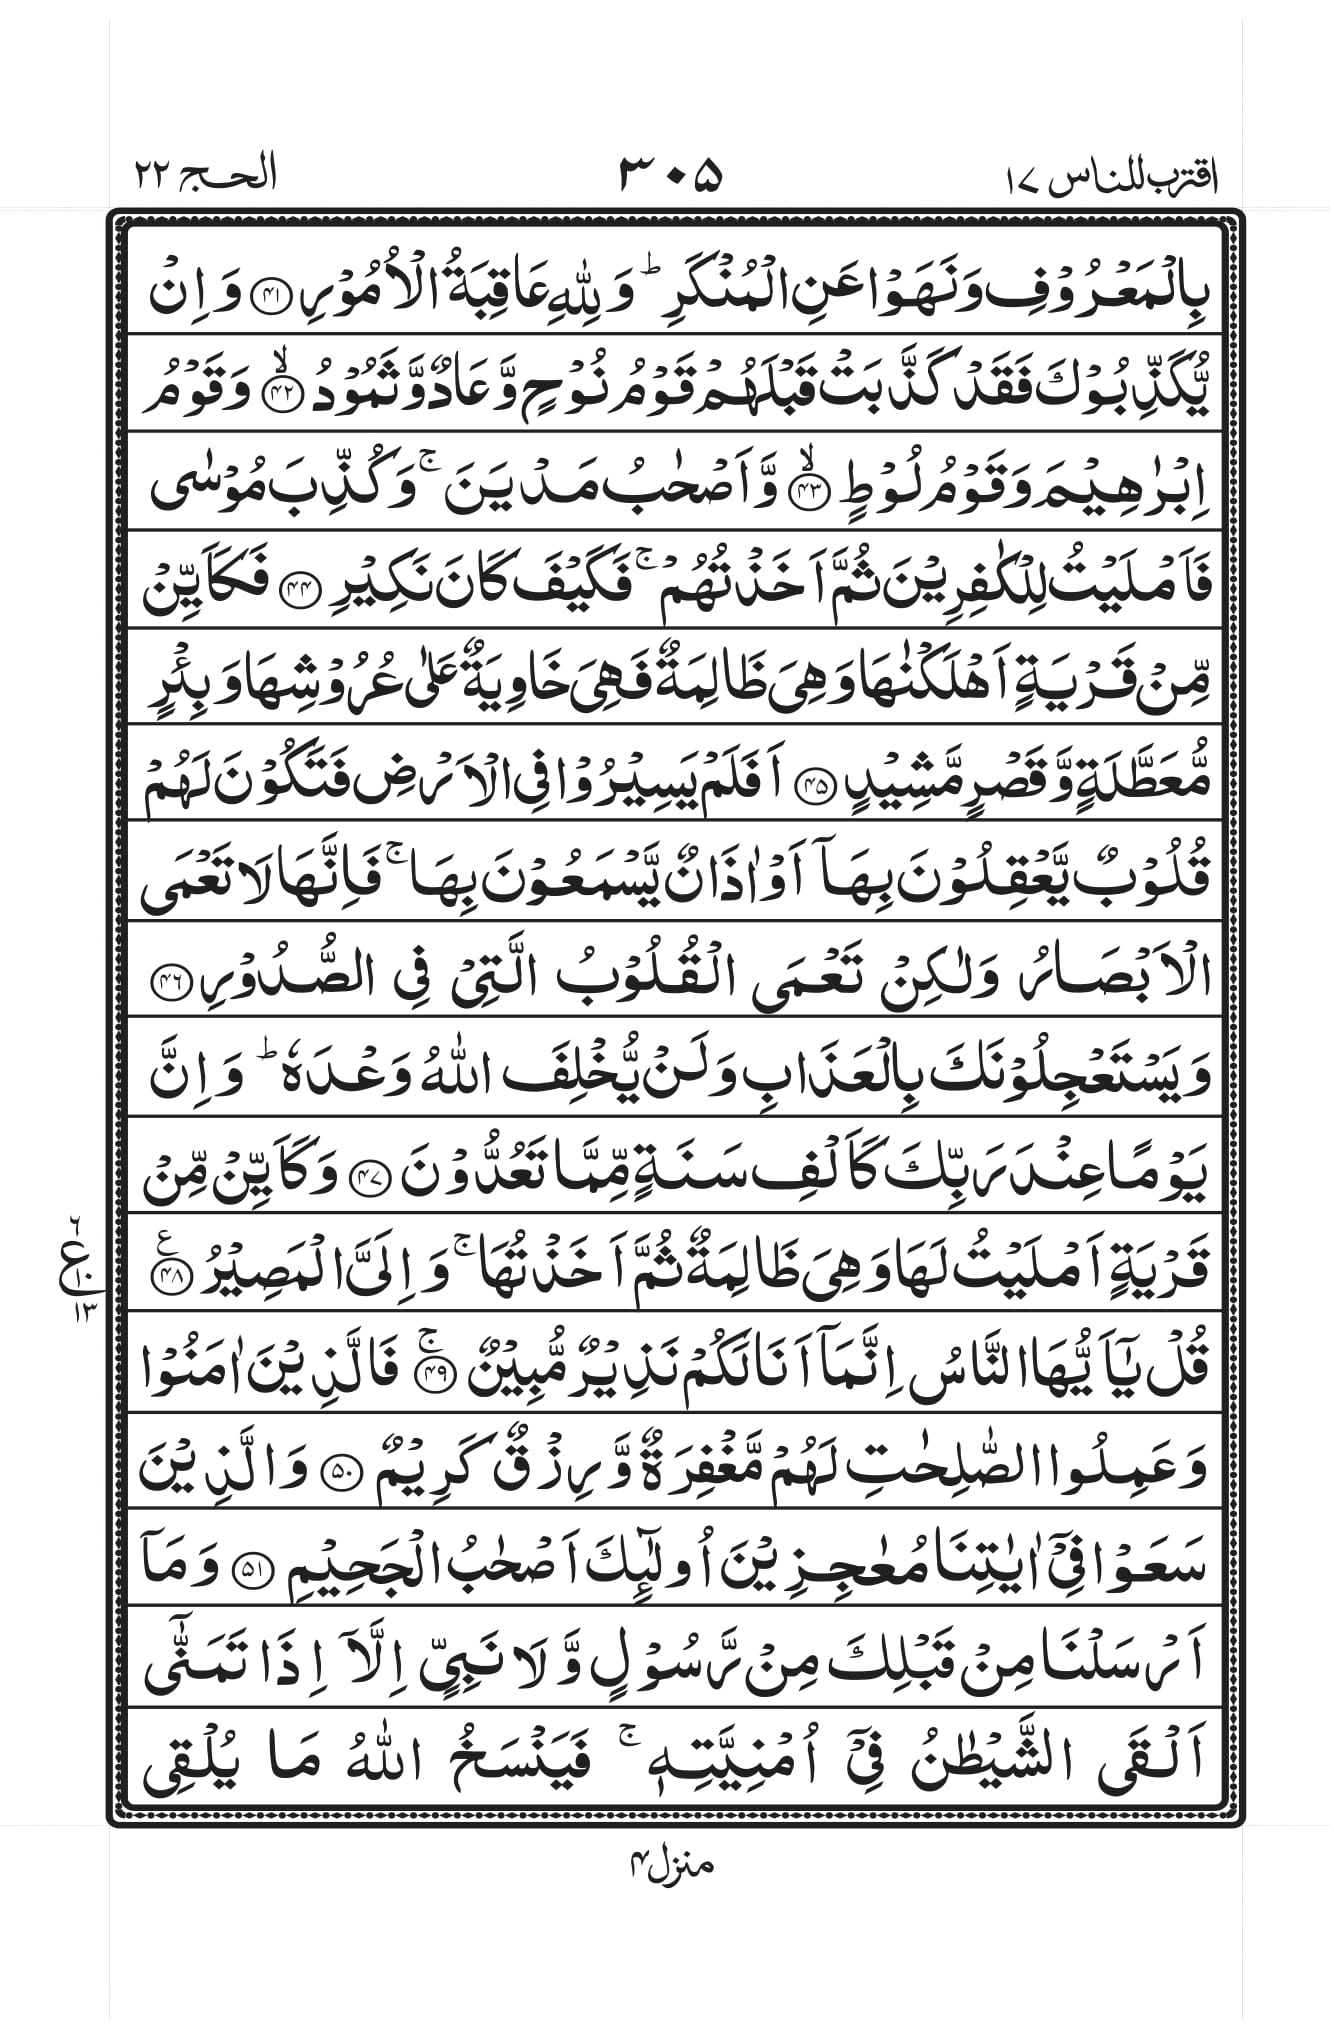 اقترب للناس ١٧
٣٠۵
الحج ٢٢
بِالۡمَعۡرُوۡفِ وَنَهَوۡا عَنِ الۡمُنۡكَرِ ؕ وَلِلّٰهِ عَاقِبَةُ الۡاُمُوۡرِ ﴿۴۱﴾ وَاِنۡ
يُّكَذِّبُوۡكَ فَقَدۡ كَذَّبَتۡ قَبۡلَهُمۡ قَوۡمُ نُوۡحٍ وَّعَادٌ وَّثَمُوۡدُ ﴿۴۲﴾ۙ وَقَوۡمُ
اِبۡرٰهِيۡمَ وَقَوۡمُ لُوۡطٍ ﴿۴۳﴾ۙ وَّاَصۡحٰبُ مَدۡيَنَ ۚ وَكُذِّبَ مُوۡسٰى
فَاَمۡلَيۡتُ لِلۡكٰفِرِيۡنَ ثُمَّ اَخَذۡتُهُمۡ ۚ فَكَيۡفَ كَانَ نَكِيۡرِ ﴿۴۴﴾ فَكَاَيِّنۡ
مِّنۡ قَرۡيَةٍ اَهۡلَكۡنٰهَا وَهِىَ ظَالِمَةٌ فَهِىَ خَاوِيَةٌ عَلٰى عُرُوۡشِهَا وَبِئۡرٍ
مُّعَطَّلَةٍ وَّقَصۡرٍ مَّشِيۡدٍ ﴿۴۵﴾ اَفَلَمۡ يَسِيۡرُوۡا فِى الۡاَرۡضِ فَتَكُوۡنَ لَهُمۡ
قُلُوۡبٌ يَّعۡقِلُوۡنَ بِهَاۤ اَوۡ اٰذَانٌ يَّسۡمَعُوۡنَ بِهَا ۚ فَاِنَّهَا لَا تَعۡمَى
الۡاَبۡصَارُ وَلٰكِنۡ تَعۡمَى الۡقُلُوۡبُ الَّتِىۡ فِى الصُّدُوۡرِ ﴿۴۶﴾
وَيَسۡتَعۡجِلُوۡنَكَ بِالۡعَذَابِ وَلَنۡ يُّخۡلِفَ اللّٰهُ وَعۡدَهٗ ؕ وَاِنَّ
يَوۡمًا عِنۡدَ رَبِّكَ كَاَلۡفِ سَنَةٍ مِّمَّا تَعُدُّوۡنَ ﴿۴۷﴾ وَكَاَيِّنۡ مِّنۡ
قَرۡيَةٍ اَمۡلَيۡتُ لَهَا وَهِىَ ظَالِمَةٌ ثُمَّ اَخَذۡتُهَا ۚ وَاِلَىَّ الۡمَصِيۡرُ ﴿۴۸﴾ ع
٦
ع
١٠
١٣
قُلۡ يٰۤاَيُّهَا النَّاسُ اِنَّمَاۤ اَنَا لَكُمۡ نَذِيۡرٌ مُّبِيۡنٌ ﴿۴۹﴾ۚ فَالَّذِيۡنَ اٰمَنُوۡا
وَعَمِلُوا الصّٰلِحٰتِ لَهُمۡ مَّغۡفِرَةٌ وَّرِزۡقٌ كَرِيۡمٌ ﴿۵۰﴾ وَالَّذِيۡنَ
سَعَوۡا فِىۡۤ اٰيٰتِنَا مُعٰجِزِيۡنَ اُولٰٓئِكَ اَصۡحٰبُ الۡجَحِيۡمِ ﴿۵۱﴾ وَمَاۤ
اَرۡسَلۡنَا مِنۡ قَبۡلِكَ مِنۡ رَّسُوۡلٍ وَّلَا نَبِىٍّ اِلَّاۤ اِذَا تَمَنّٰٓى
اَلۡقَى الشَّيۡطٰنُ فِىۡۤ اُمۡنِيَّتِهٖ ۚ فَيَنۡسَخُ اللّٰهُ مَا يُلۡقِى
منزل ۴